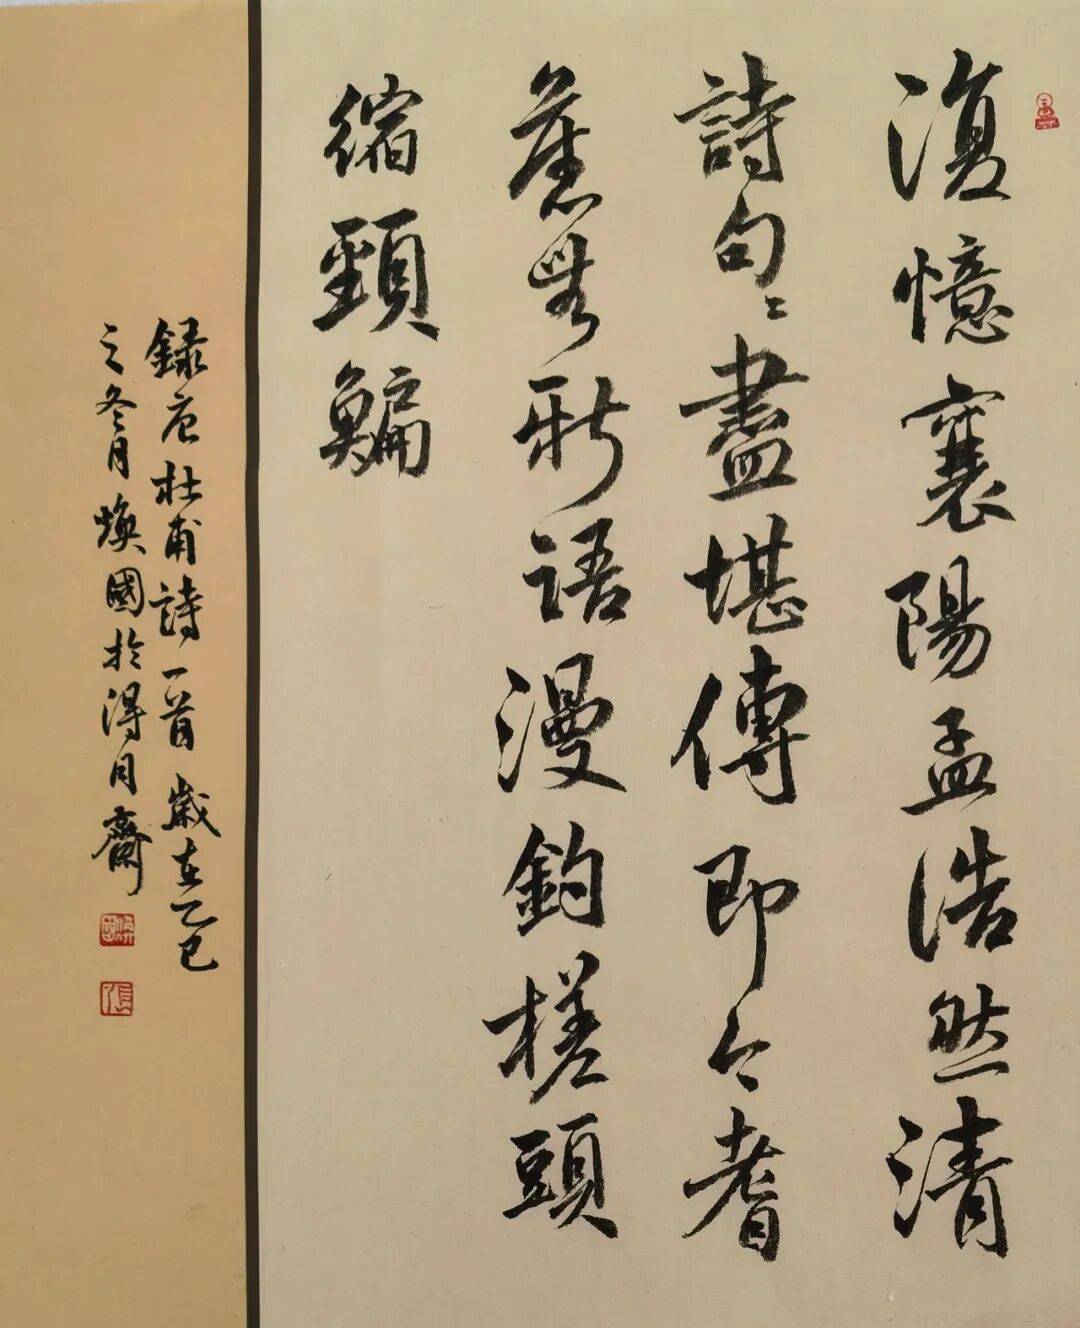 復憶襄陽孟浩然清
詩句〻盡堪傳即今耆
舊無新語漫釣槎頭
縮頸鯿
錄唐杜甫詩一首歲在乙巳
之冬月煥國於得月齋